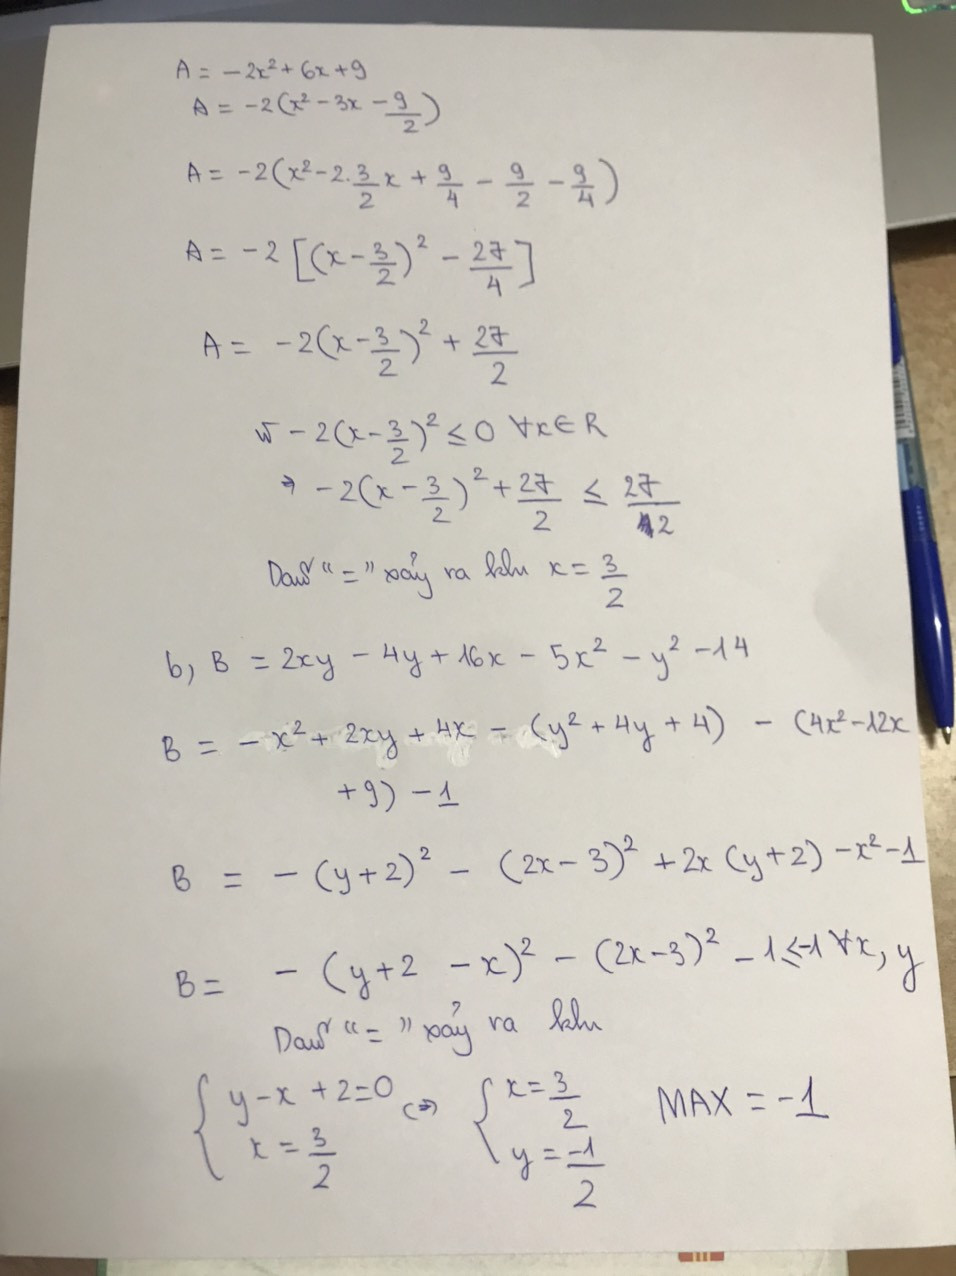 A = -2x² + 6x + 9
A = -2(x² - 3x - 9/2)
A = -2(x² - 2.3/2x + 9/4 - 9/2 - 9/4)
A = -2[(x - 3/2)² - 27/4]
A = -2(x - 3/2)² + 27/2
Vì -2(x - 3/2)² ≤ 0 ∀x∈R
→ -2(x - 3/2)² + 27/2 ≤ 27/2
Dấu "=" xảy ra khi x = 3/2
b, B = 2xy - 4y + 16x - 5x² - y² - 14
B = -x² + 2xy + 4x - (y² + 4y + 4) - (4x² - 12x
+ 9) - 1
B = - (y + 2)² - (2x - 3)² + 2x (y + 2) - x² - 1
B = - (y + 2 - x)² - (2x - 3)² - 1 ≤ -1 ∀x, y
Dấu "=" xảy ra khi
{ y - x + 2 = 0 <=> { x = 3/2 MAX = -1
x = 3/2 y = -1/2